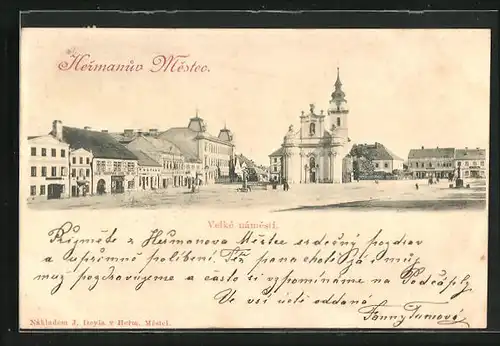 Heřmanův Městec.
Velké náměstí.
Přijměte z Heřmanova Městce srdečný pozdrav
a upřímné políbení. Též pana chotě Szá i můj
muž pozdravujeme a často si vzpomínáme na Podčáply
Ve vší úctě oddaná
Fanny Tumová
Nákladem J. Deyla v Heřm. Městci.